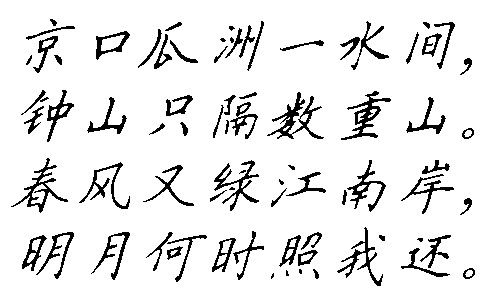 京口瓜洲一水间，
钟山只隔数重山。
春风又绿江南岸，
明月何时照我还。